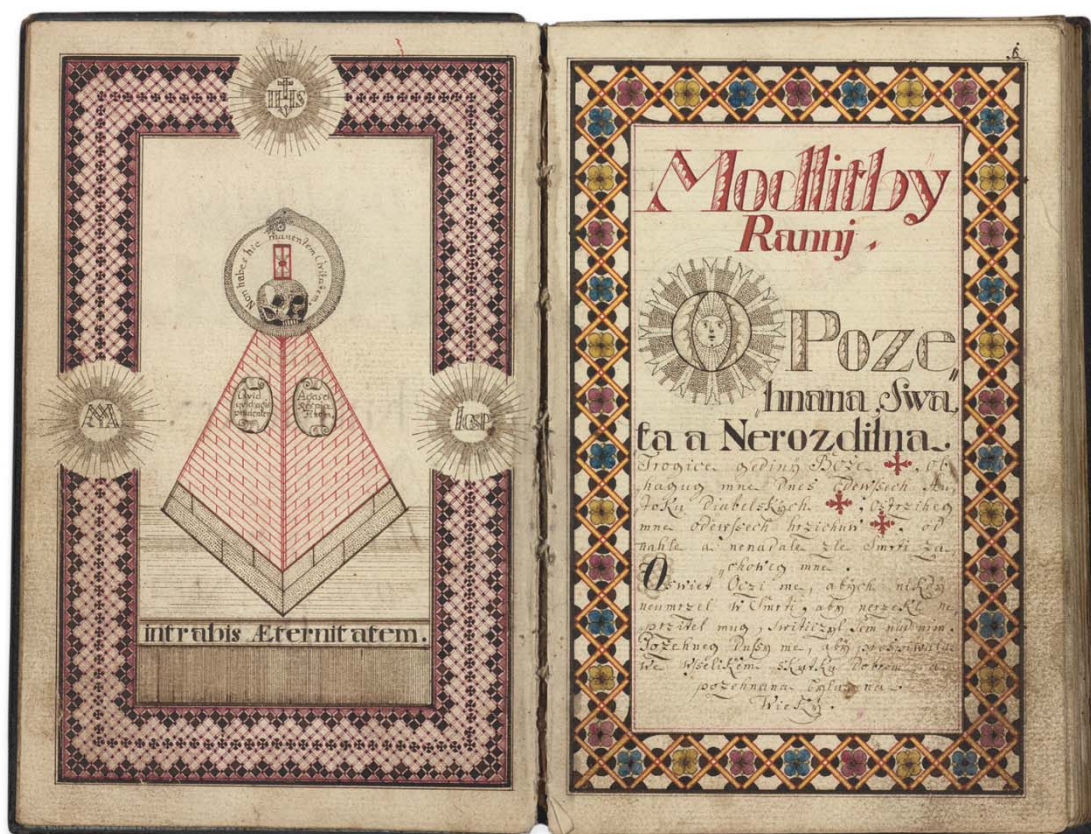 IHS
Non habes hic manentem Civitatem
MA
IOSP
intrabis Æternitatem.
6
Modlitby
Rannj.
O Poze„
„hnana Swa„
ta a Nerozdilna.
Trogice gediny Boże ob„
hagug mne Dnes odewssech Au„
toku Diabelskych ostrzihey
mne odewssech hrzichuw od
nahle a nenadale zle Smrti za„
„choweg mne.
Oswiet Oczi me, abych nikdy
neumrzel w Smrti, aby nerzekl ne„
przitel mug, switiezyl sem nad nim.
Pożehneg Dussy me, aby
we wsselikem skutku Dobrem
pożehnana byla na
Wieky.